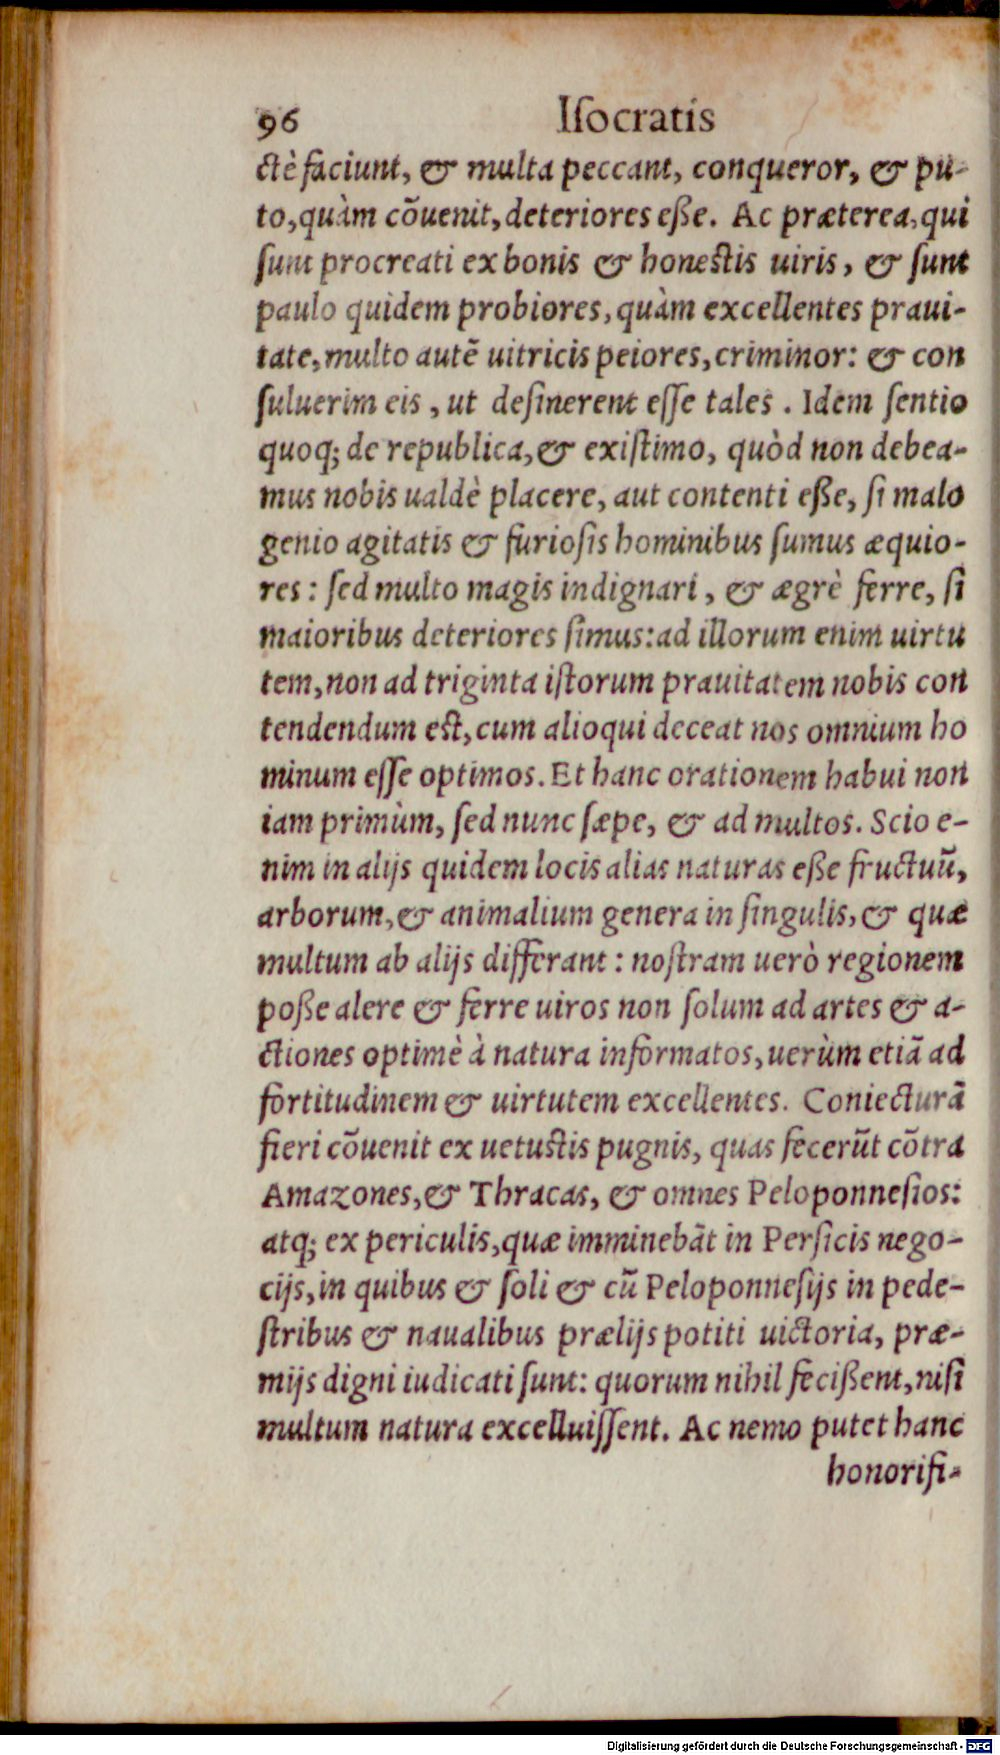 96 Iſocratis
ctè faciunt, & multa peccant, conqueror, & pu-
to, quàm cõuenit, deteriores eße. Ac præterea, qui
ſunt procreati ex bonis & honestis uiris, & ſunt
paulo quidem probiores, quàm excellentes praui-
tate, multo autẽ uitricis peiores, criminor: & con
ſuluerim eis, ut deſinerent eſſe tales. Idem ſentio
quoq; de republica, & exiſtimo, quòd non debea-
mus nobis ualdè placere, aut contenti eße, ſi malo
genio agitatis & furioſis hominibus ſumus æquio-
res: ſed multo magis indignari, & ægrè ferre, ſi
maioribus deteriores ſimus: ad illorum enim uirtu
tem, non ad triginta iſtorum prauitatem nobis con
tendendum est, cum alioqui deceat nos omnium ho
minum eſſe optimos. Et hanc orationem habui non
iam primùm, ſed nunc ſæpe, & ad multos. Scio e-
nim in alijs quidem locis alias naturas eße fructuũ,
arborum, & animalium genera in ſingulis, & quæ
multum ab alijs differant: noſtram uerò regionem
poße alere & ferre uiros non ſolum ad artes & a-
ctiones optimè à natura informatos, uerùm etiã ad
fortitudinem & uirtutem excellentes. Coniecturã
fieri cõuenit ex uetustis pugnis, quas fecerũt cõtra
Amazones, & Thracas, & omnes Peloponneſios:
atq; ex periculis, quæ imminebãt in Perſicis nego-
cijs, in quibus & ſoli & cũ Peloponneſijs in pede-
ſtribus & naualibus prælijs potiti uictoria, præ-
mijs digni iudicati ſunt: quorum nihil fecißent, niſi
multum natura excelluiſſent. Ac nemo putet hanc
honorifi-
Digitalisierung gefördert durch die Deutsche Forschungsgemeinschaft - DFG